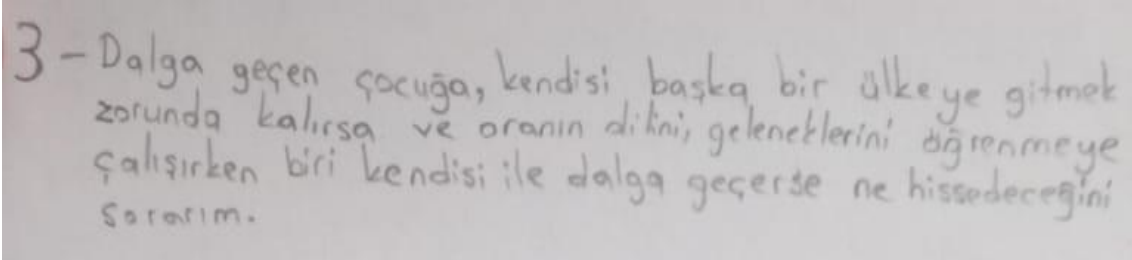 3 - Dalga geçen çocuğa, kendisi başka bir ülkeye gitmek
zorunda kalırsa ve oranın dilini, geleneklerini öğrenmeye
çalışırken biri kendisi ile dalga geçerse ne hissedeceğini
sorarım.